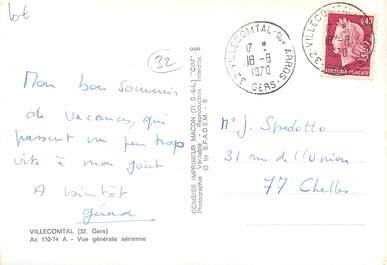 Lot
32
32-VILLECOMTAL-SUR-ARROS
17 H
18-8
1970
GERS
0,40
REPUBLIQUE FRANÇAISE
Mon bon souvenir
de vacances, qui
passent un peu trop
vite à mon goût
A bientôt
gérard
COMBIER IMPRIMEUR MACON (71. S.-&-L.) "CIM"
Photographie Véritable - Reproduction Interdite.
© by S.P.A.D.E.M. -
M J. Spadotto
31 rue de l'Union
77 Chelles
VILLECOMTAL (32. Gers)
Ac 110-74 A - Vue générale aérienne